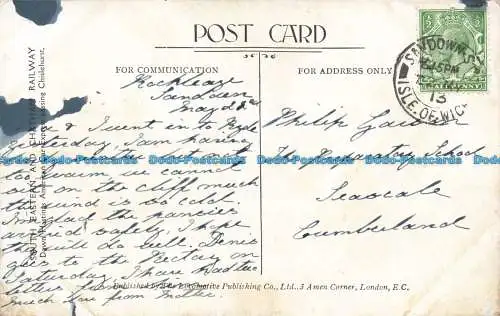 POST CARD
FOR COMMUNICATION
FOR ADDRESS ONLY
SANDOWN
15PM
13
ISLE OF WIG
HALFPENNY
SOUTH EASTERN AND CHATHAM RAILWAY
Down Hastings and Express passing Chislehurst,
Sandown
May 21
& I went in to Ryde
yesterday, I am having
too warm, we cannot
sit on the cliff much
the wind is so cold.
I'm glad the pansies
arrived safely, I hope
they will do well. Denis
goes to the Rectory on
Saturday, I have had two
letters from
much love from Mother
Philip
The Preparatory School
Seascale
Cumberland
Published by The Locomotive Publishing Co., Ltd., 3 Amen Corner, London, E.C.
Dodo-Postcards Dodo-Postcards Dodo-Postcards Dodo-Postcards Dodo-Postcards